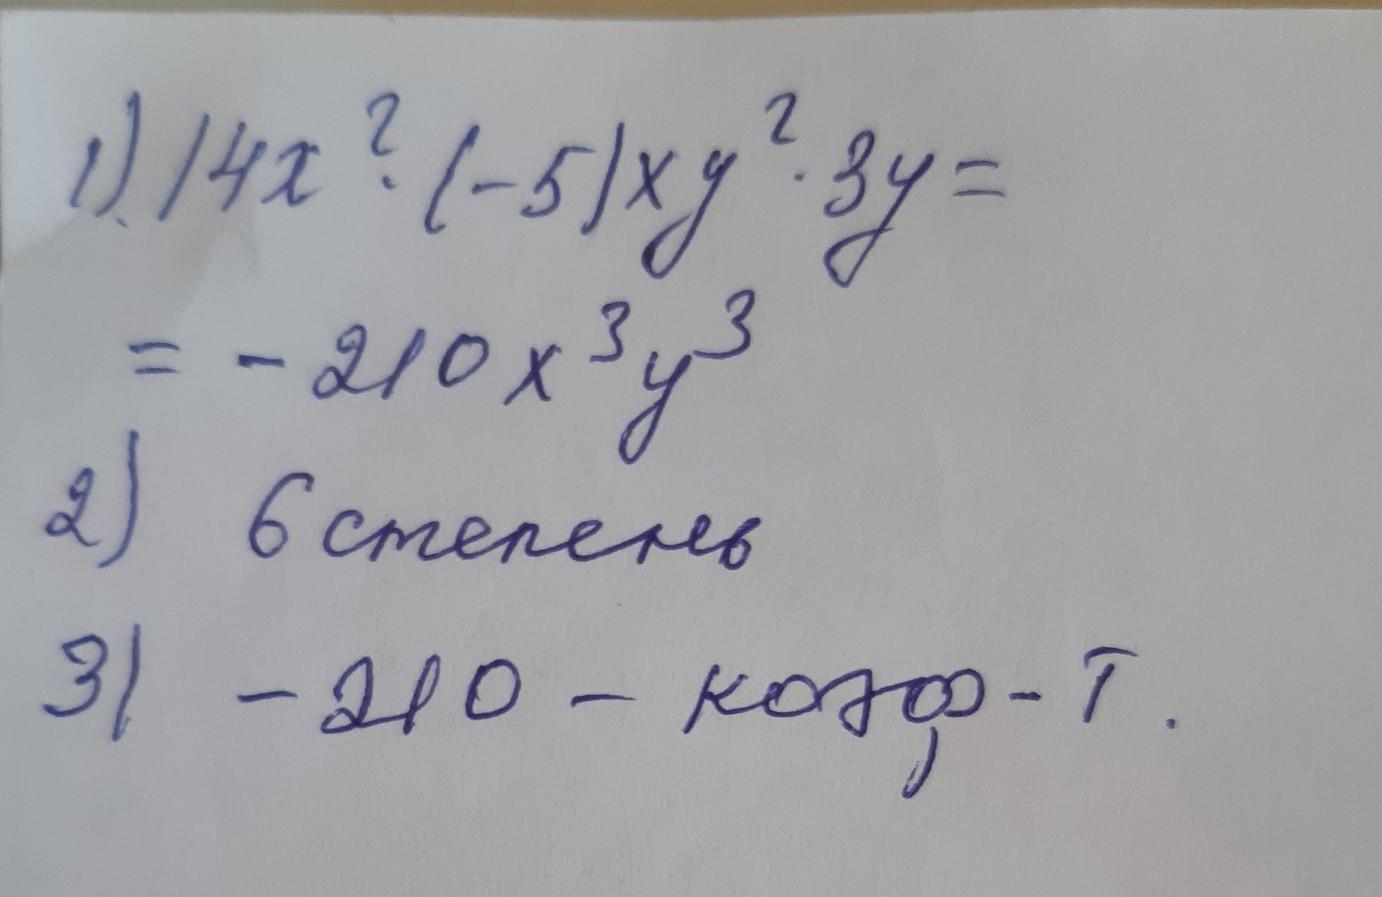 1) 14x² · (-5)xy² · 3y =
= - 210 x³y³
2) 6 степень
3) - 210 - коэф-т.